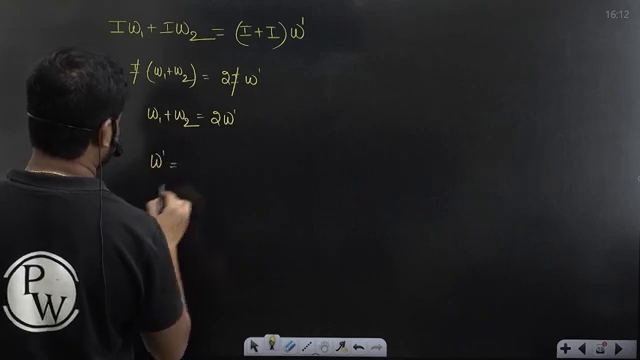 16:12
Iω₁ + Iω₂ = (I + I) ω'
I (ω₁+ω₂) = 2I ω'
ω₁ + ω₂ = 2ω'
ω' =
PW